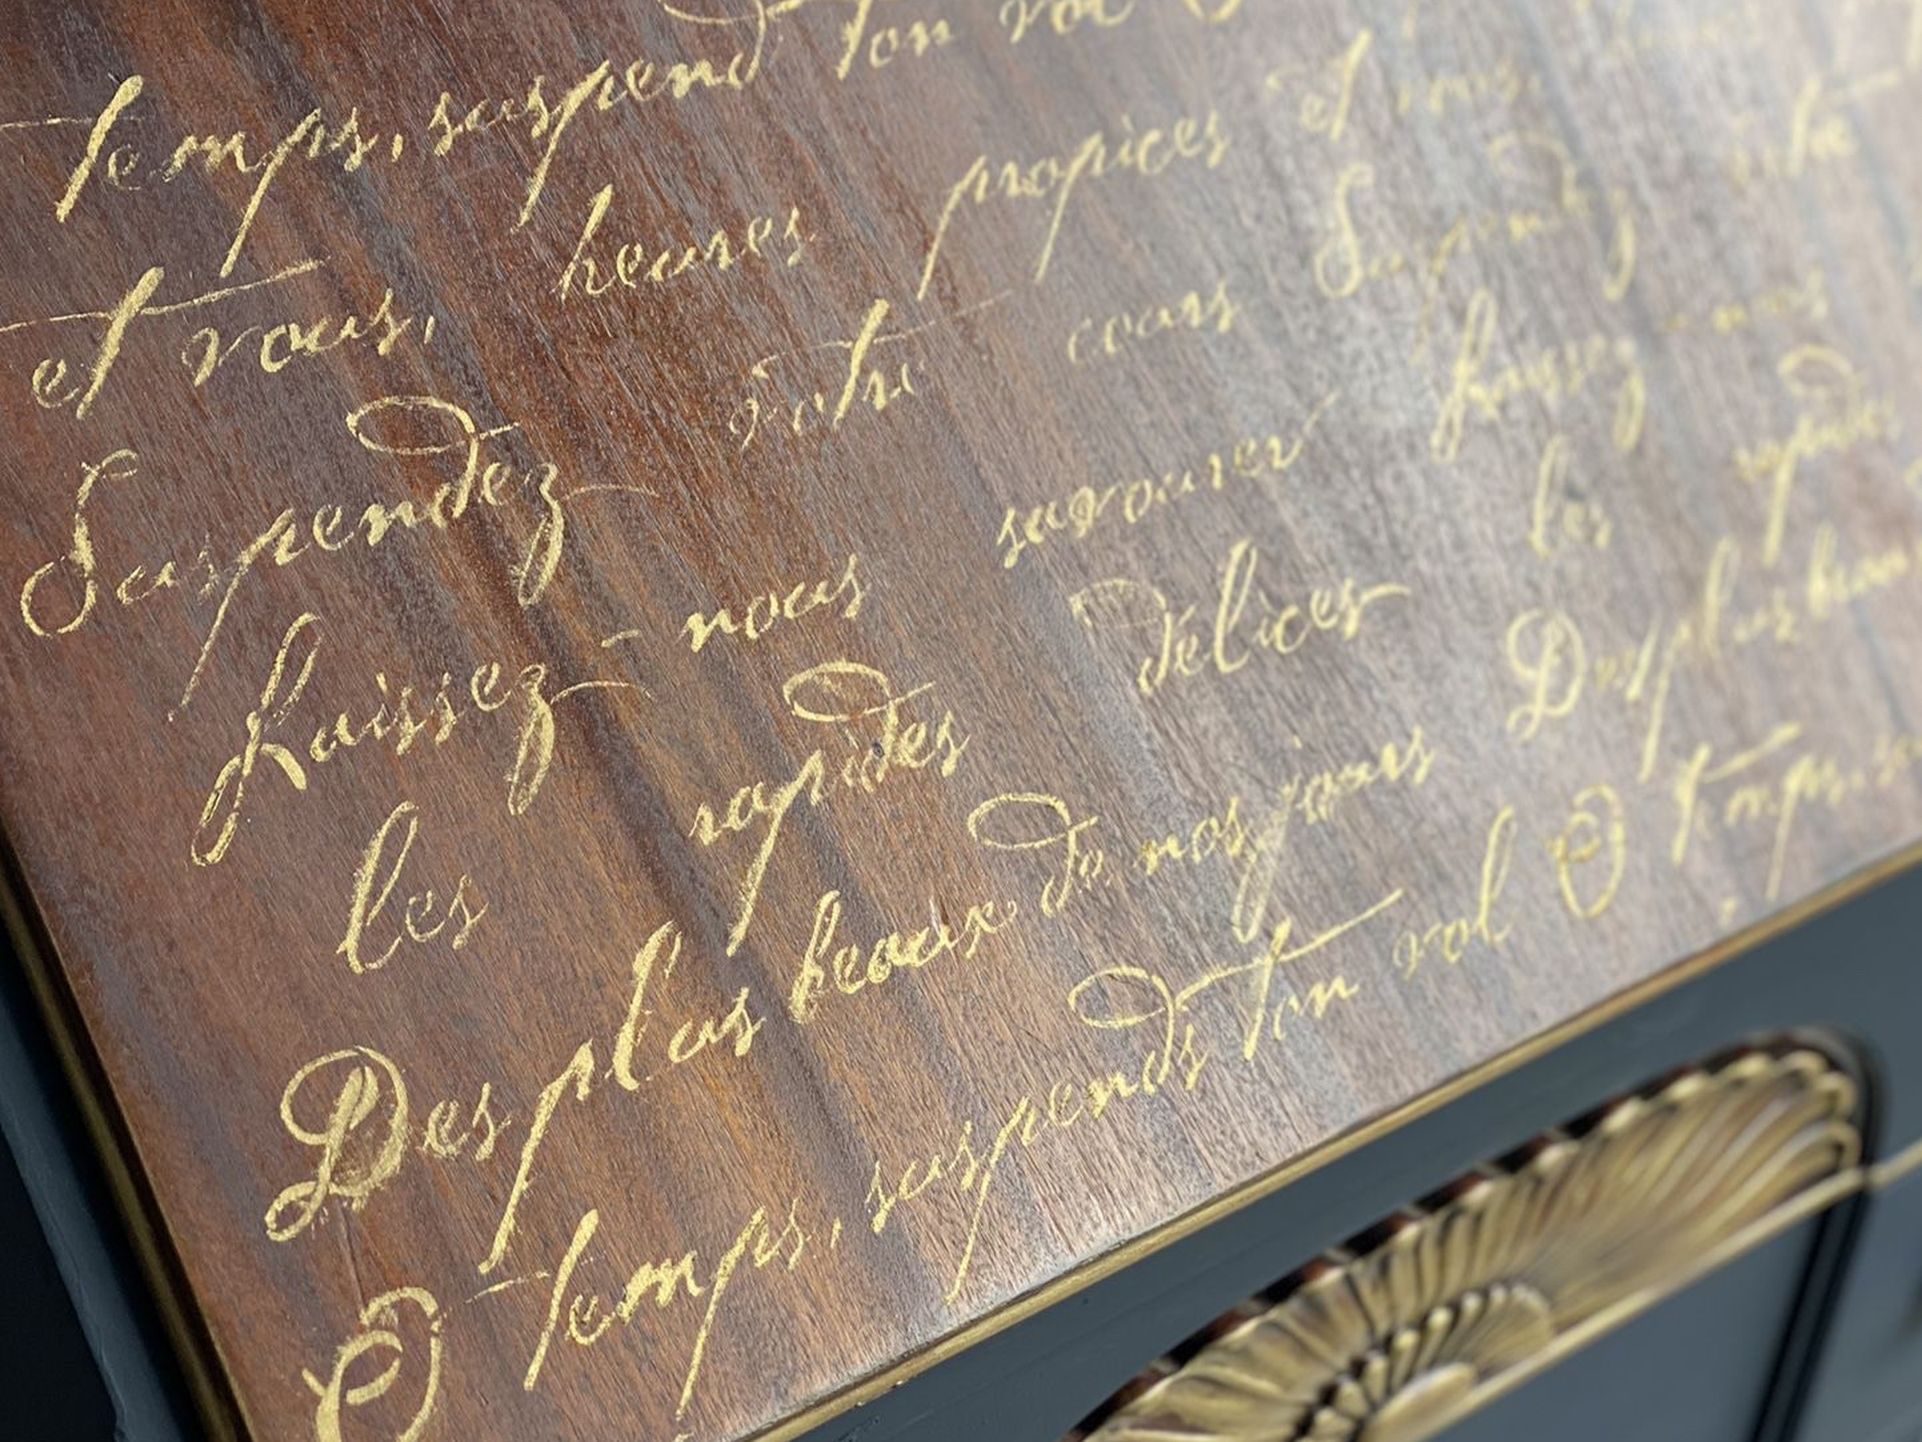 temps, suspend ton vol
et vous, heures propices et vous,
Suspendez votre cours Suspendez votre
Laissez-nous savourer Laissez-nous
les rapides délices les rapides
Des plus beaux de nos jours Des plus beaux
O temps, suspends ton vol O temps,